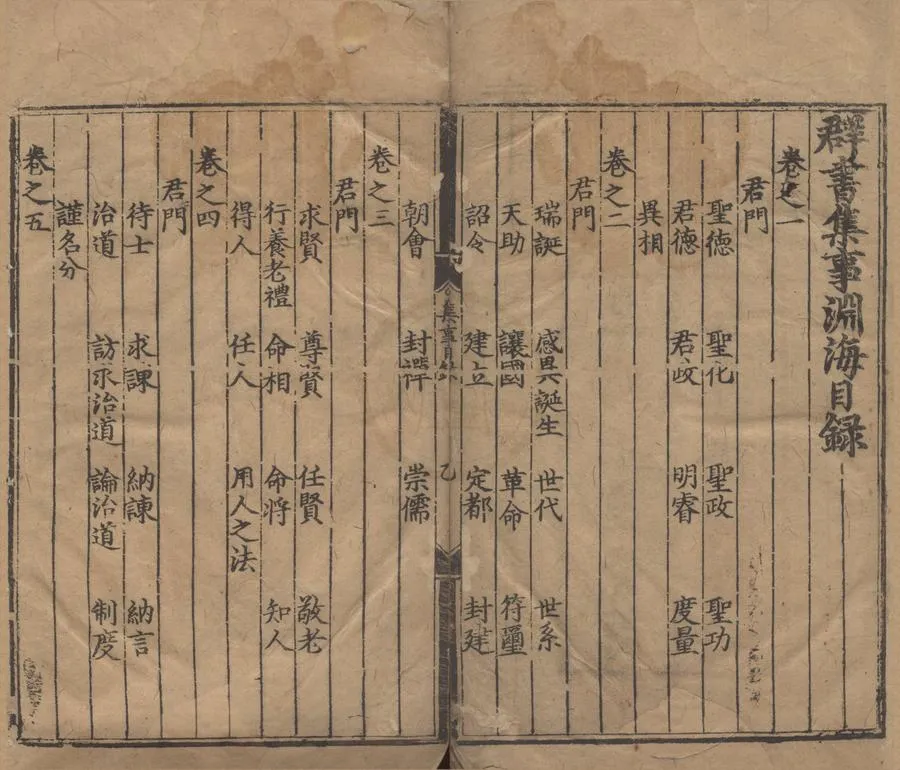 群書集事淵海目録
卷之一
君門
聖德 聖化 聖政 聖功
君德 君政 明睿 度量
異相
卷之二
君門
瑞誕 感異誕生 世代 世系
天助 讓國 革命 符璽
詔令 建立 定都 封建
集事目錄
乙
朝會 封禪 崇儒
卷之三
君門
求賢 尊賢 任賢 敬老
行養老禮 命相 命將 知人
得人 任人 用人之法
卷之四
君門
待士 求諫 納諫 納言
治道 訪求治道 論治道 制度
謹名分
卷之五